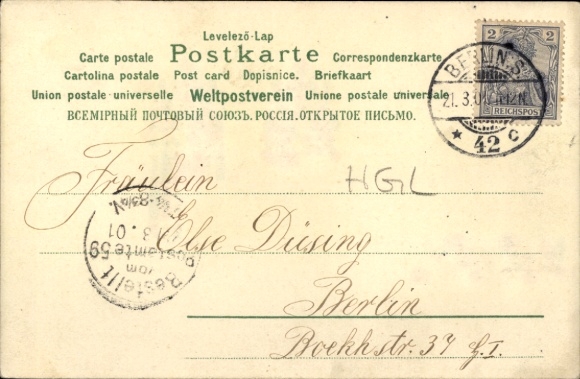 Levelező-Lap
Carte postale Postkarte Correspondenzkarte
Cartolina postale Post card Dopisnice. Briefkaart
Union postale universelle Weltpostverein Unione postale universale
ВСЕМІРНЫЙ ПОЧТОВЫЙ СОЮЗЪ. РОССІЯ. ОТКРЫТОЕ ПИСЬМО.
2 2
REICHSPOST
BERLIN.S.
21.3.01
* 42 c
Fräulein
HGL
Else Düsing
Berlin
Boekhstr. 37
Bestellt
vom
Postamte 59
3. 01